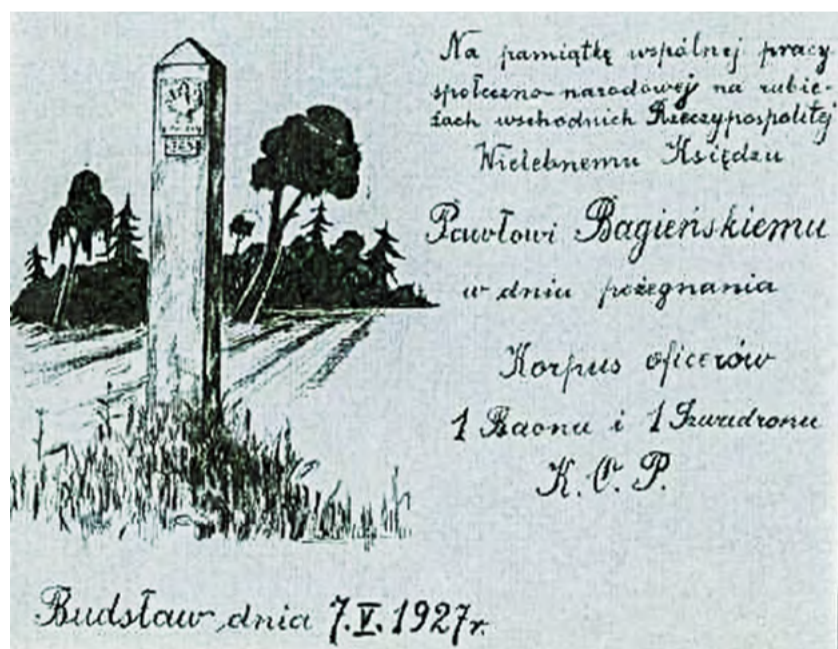 Na pamiątkę wspólnej pracy
społeczno-narodowej na rubie-
żach wschodnich Rzeczypospolitej
Wielebnemu Księdzu
Pawłowi Bagieńskiemu
w dniu pożegnania
Korpus oficerów
1 Baonu i 1 Szwadronu
K.O.P.
Budsław dnia 7.V.1927r.